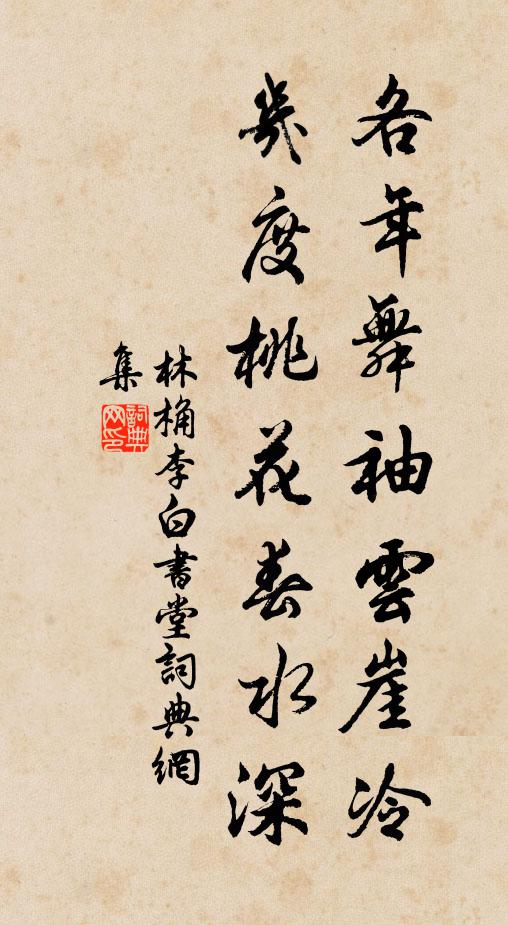 各年舞袖雲崖冷
幾度桃花春水深
林桷李白書堂詞典網
集
詞典网印